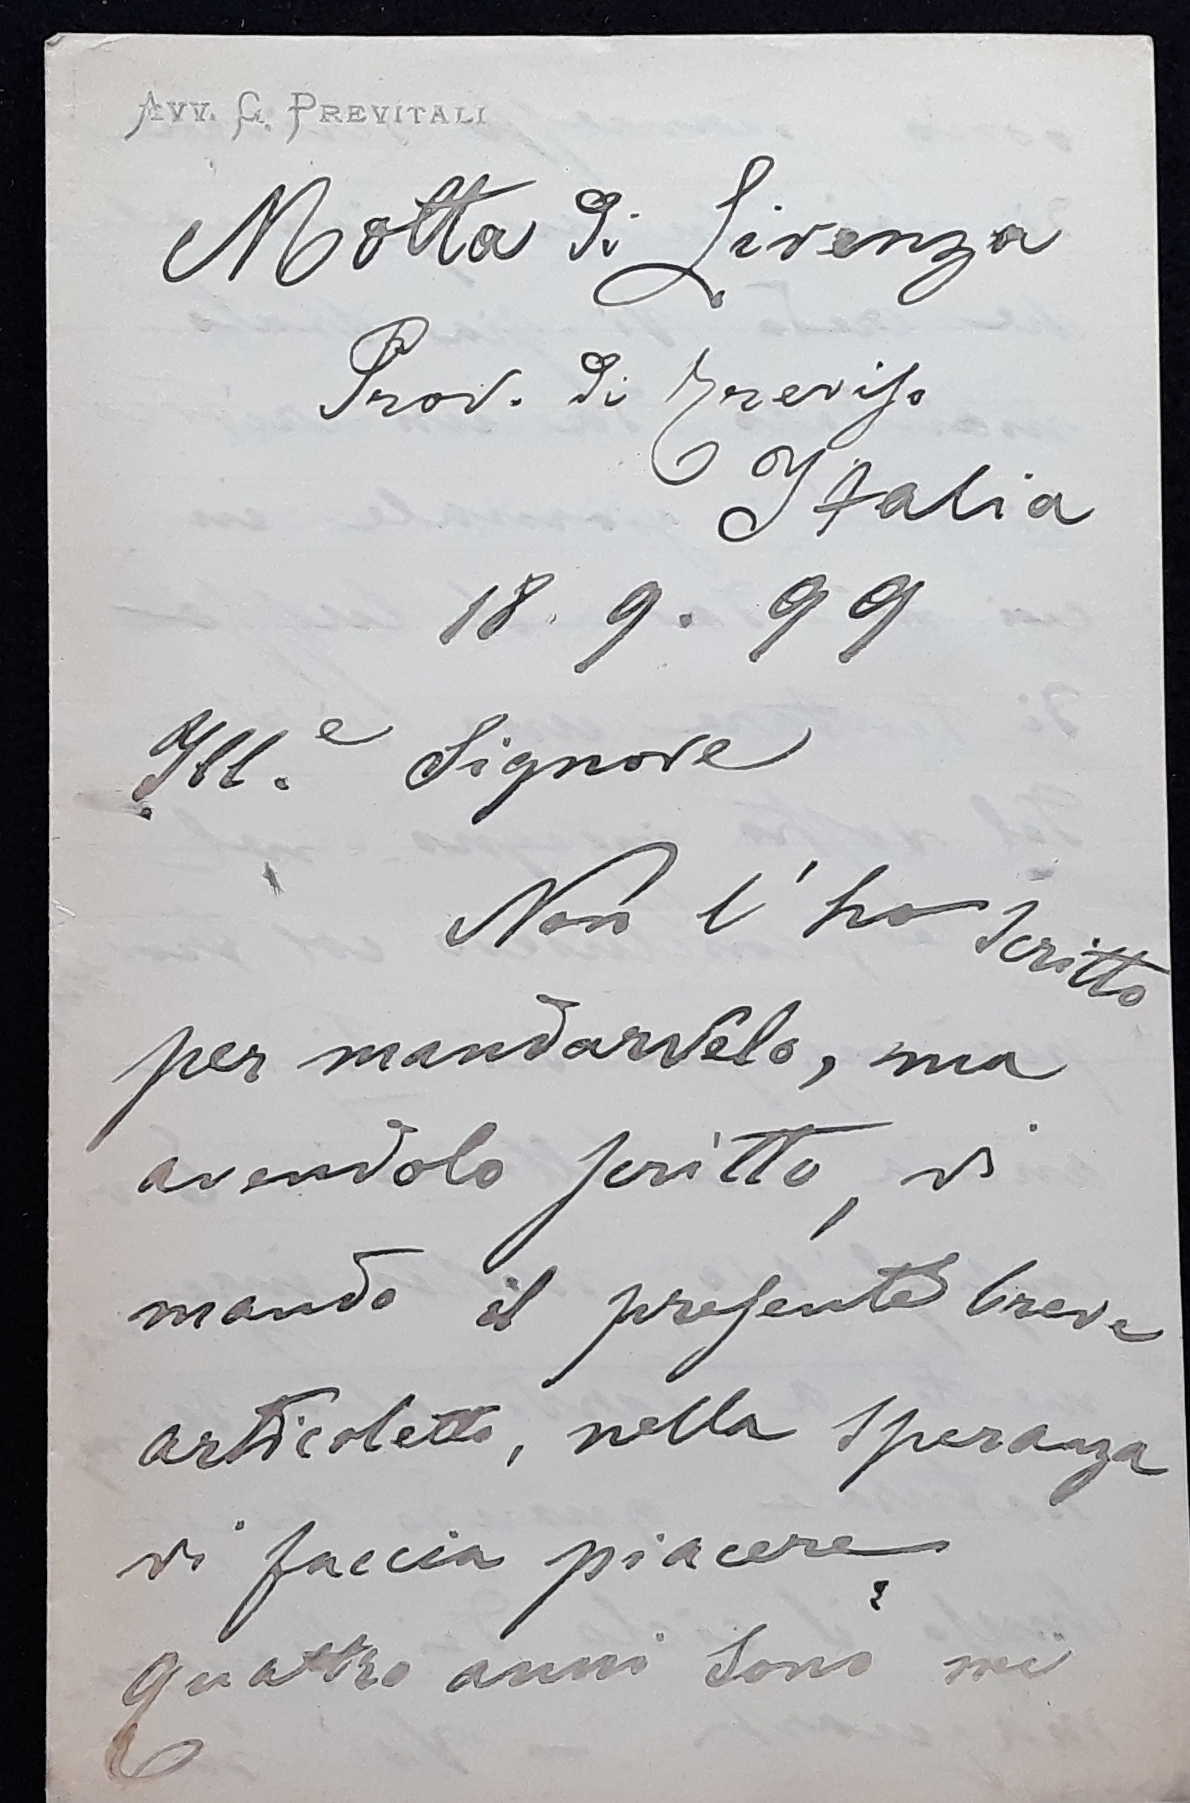 AVV. G. PREVITALI
Motta di Livenza
Prov. di Treviso
Italia
18. 9. 99
Ill.e Signore
Non l'ho scritto
per mandarvelo, ma
avendolo scritto, vi
mando il presente breve
articoletto, nella speranza
vi faccia piacere
Quattro anni sono